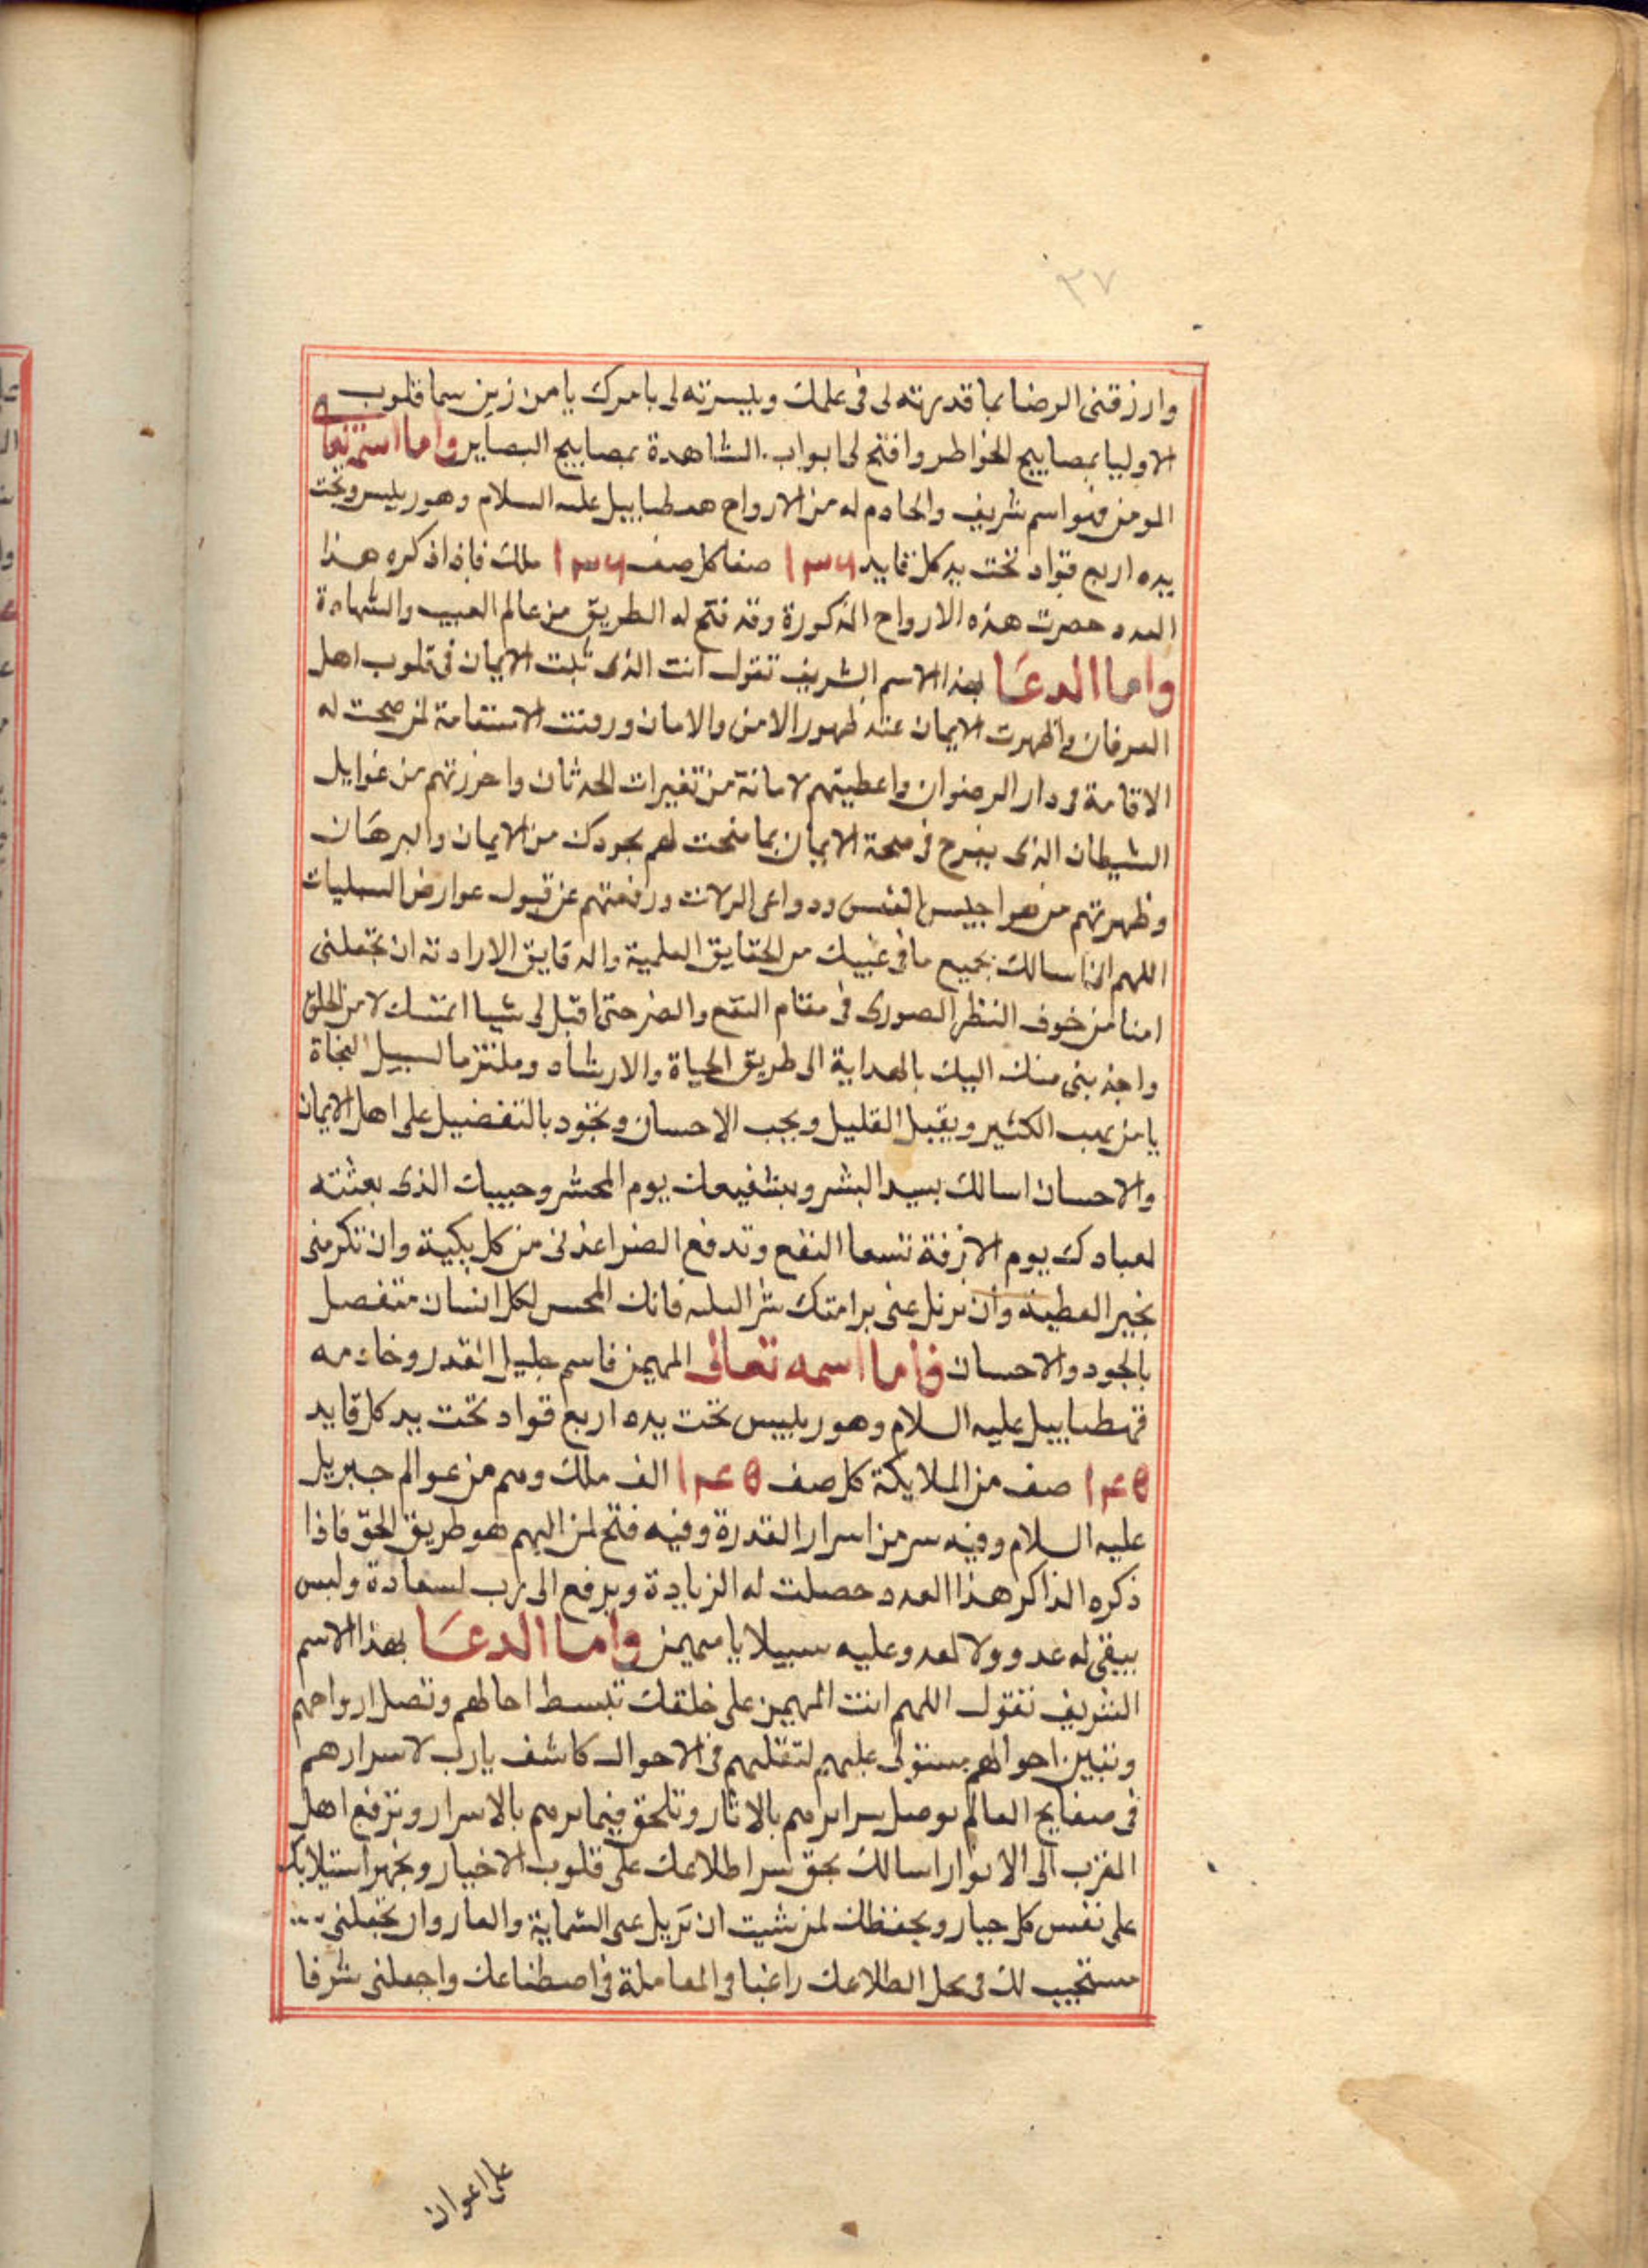 ٣٧
وارزقنى الرضا بما قدرته لى فى علمك ويسرته لى بامرك يا من زين سما قلوب
الاوليا بمصابيح الخواطر وافتح لى ابواب الشاهدة بمصابيح البصاير واما اسمه تعالى
المومن فهو اسم شريف والخادم له من الارواح همطياييل عليه السلام وهو رييس وتحت
يده اربع قواد تحت يد كل قايد ١٣٦ صفا كل صف ١٣٦ ملك فاذا ذكره هذا
العدد حصرت هذه الارواح المذكورة وقد فتح له الطريق من عالم الغيب والشهادة
واما الدعا بهذا الاسم الشريف تقول انت الذى ثبت الايمان فى قلوب اهل
العرفان واظهرت الايمان عند ظهور الامن والامان ورفت الاستقامة لمن صحت له
الاقامة فى دار الرضوان واعطيتهم لامانة من تغيرات الحدثان واحرزتهم من غوايل
الشيطان الذى يفرح فى محة الايمان بما منحت لهم بجودك من الايمان والبرهان
وظهرتهم من هواجيس النفس ودواعى الزلات ورفعتهم عن قبول عوارض السليات
اللهم انا اسالك بجميع ما فى غيبك من الحقايق العلمية والدقايق الارادته ان تجعلنى
امنا من خوف النظر الصورى فى مقام النفع والضر حتى اقبل لى شيا امتك لا من الخلق
واجذبنى منك اليك بالهداية الى طريق الحياة والارشاد وملتزما لسبيل النجاة
يا من يهب الكثير ويقبل القليل ويحب الاحسان وتجود بالتفضيل على اهل الايمان
والاحسان اسالك بسيد البشر وبشفيعك يوم المحشر وحبيبك الذى بعثته
لعبادك يوم الازفة تسعا النفع وتدفع الضر اعذنى من كل بكية وان تكرمنى
بخير العطية وان تزيل عنى برامتك شر البليه فانك المحسن لكل انسان متفصل
بالجود والاحسان فاما اسمه تعالى المهيمن فاسم جليل القدر وخادمه
قهطياييل عليه السلام وهو رييس تحت يده اربع قواد تحت يد كل قايد
١٤٥ صف من الملايكة كل صف ١٤٥ الف ملك وهم من عوالم جبريل
عليه السلام وفيه سر من اسرار القدرة وفيه فتح لمن الهم هو طريق الحق فاذا
ذكره الذاكر هذا العدد حصلت له الزيادة ويرفع الى رب لسعادة وليس
يبقى له عدو ولا لعدو عليه سبيلا يا مهيمن واما الدعا بهذا الاسم
الشريف تقول اللهم انت المهيمن على خلقك تبسط احالهم وتصل ارواحهم
وتبين احوالهم مستولى عليهم لتقلبهم فى الاحوال كاشف يا رب لاسرارهم
فى صفايح العالم توصل سرايرهم بالاثار وتلحق ضمايرهم بالاسرار وترفع اهل
القرب الى الانوار اسالك بحق سر اطلاعك على قلوب الاخيار وبقهر استيلايك
على نفس كل جبار وبحفظك لمن شيت ان تزيل عنى الشماية والعار وان تجعلنى
مستجيب لك فى محل اطلاعك راغبا فى المعاملة فى اصطناعك واجعلنى شرفا
على اعوان